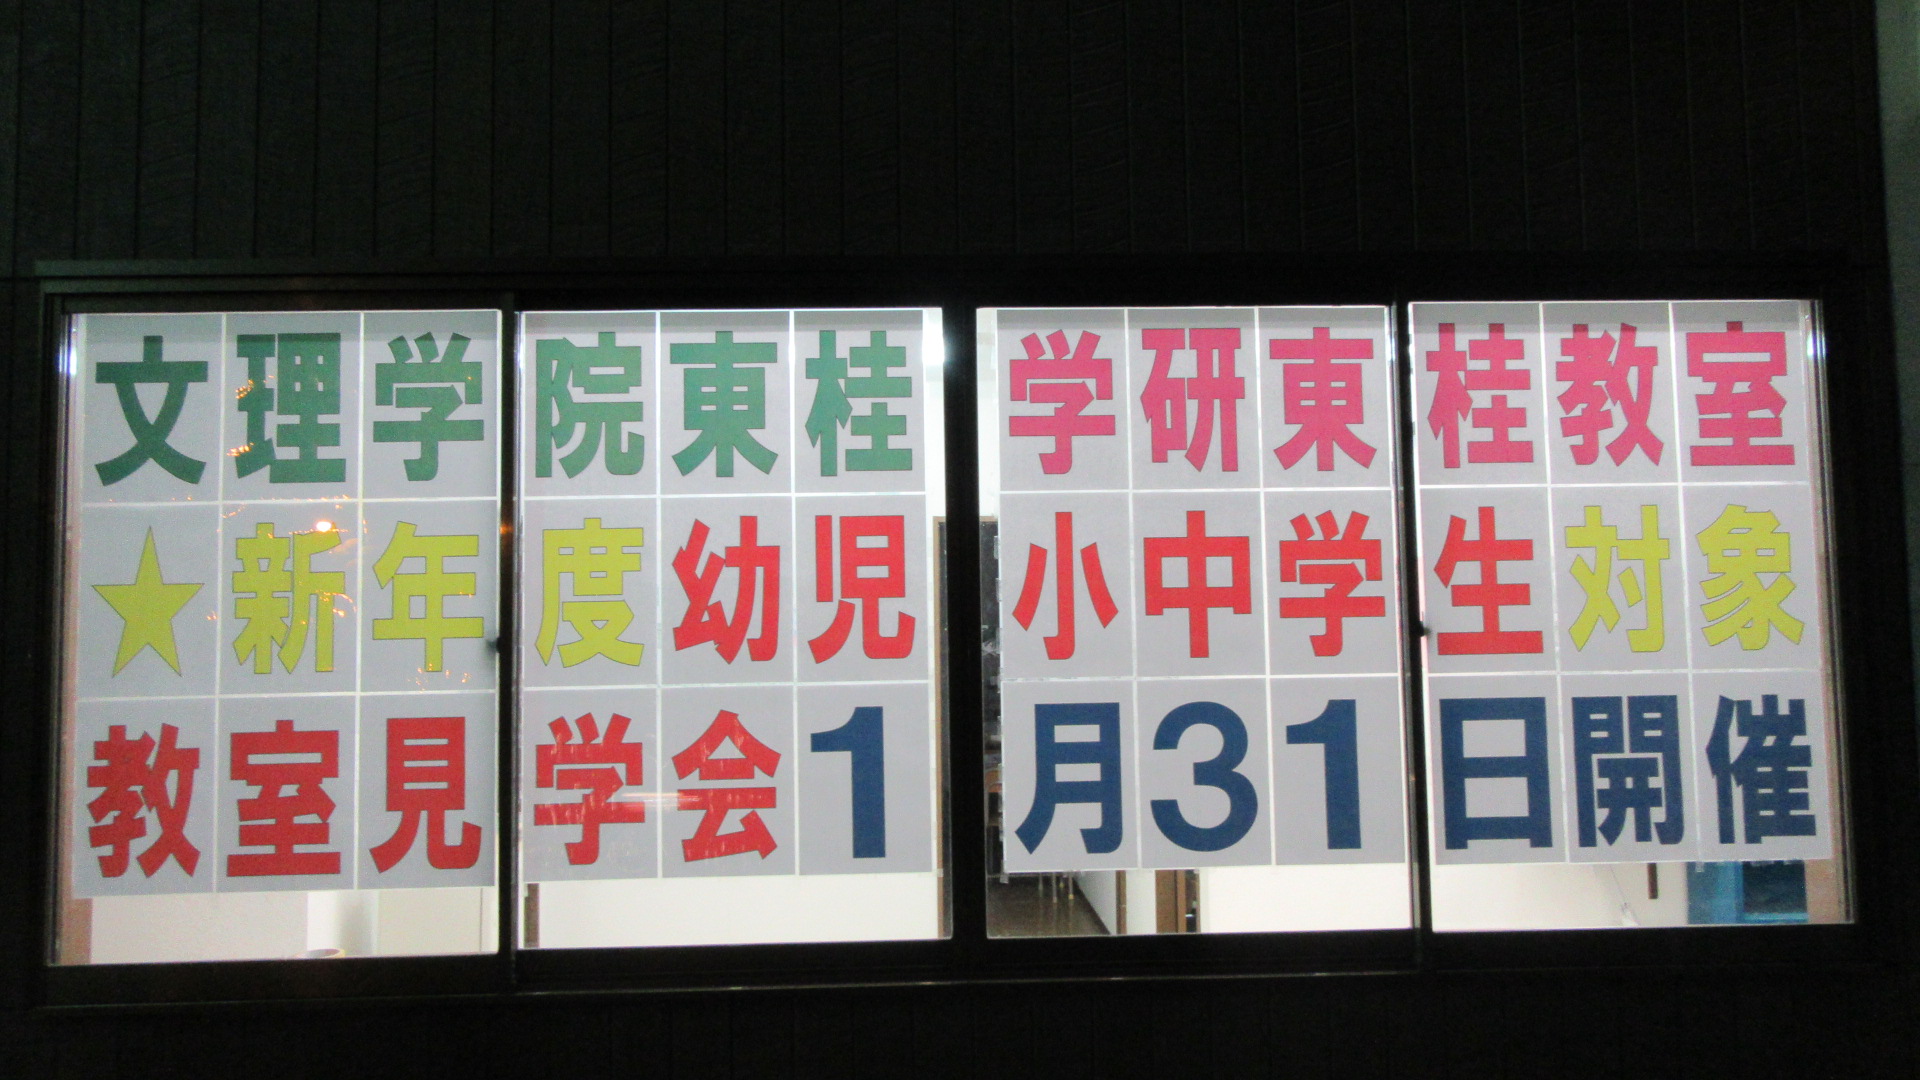 文理学院東桂学研東桂教室
★新年度幼児小中学生対象
教室見学会1月31日開催